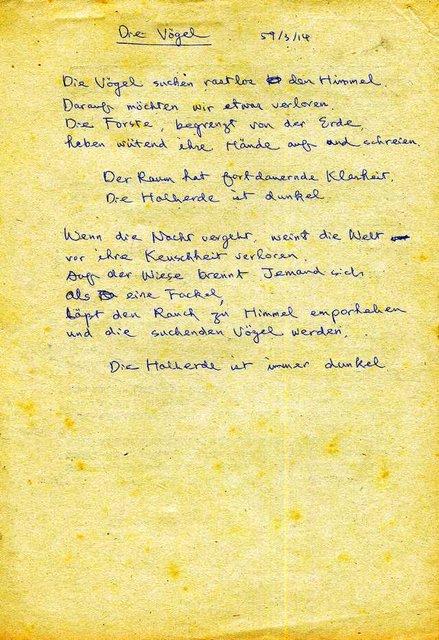 Die Vögel 59/3/14
Die Vögel suchen rastlos den Himmel.
Darauf möchten wir etwas verloren.
Die Forste, begrenzt von der Erde,
heben wütend ihre Hände auf und schreien
Der Raum hat fortdauernde Klarheit.
Die Halberde ist dunkel.
Wenn die Nacht vergeht, weint die Welt
vor ihre Keuschheit verloren.
Auf der Wiese brennt Jemand sich
als eine Fackel,
läpt den Rauch zu Himmel emporheben
und die suchenden Vögel werden.
Die Halberde ist immer dunkel